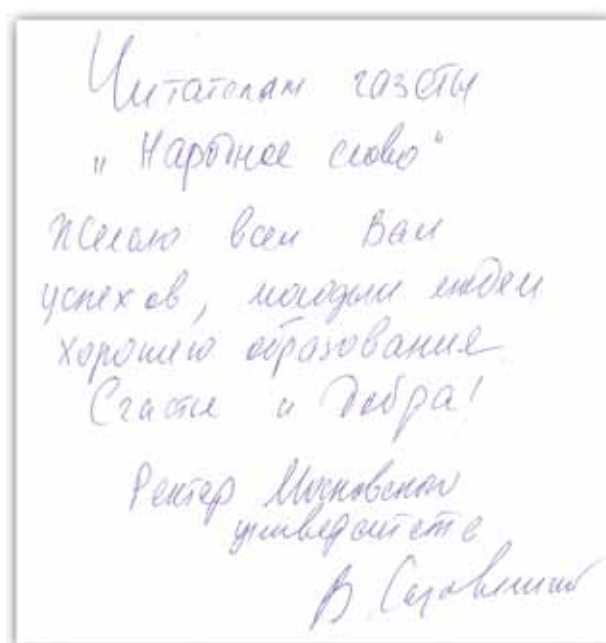 Читателям газеты
„Народное слово“
Желаю всем Вам
успехов, молодым людям
хорошего образования
Счастья и Добра!
Ректор Московского
университета
В. Садовничий